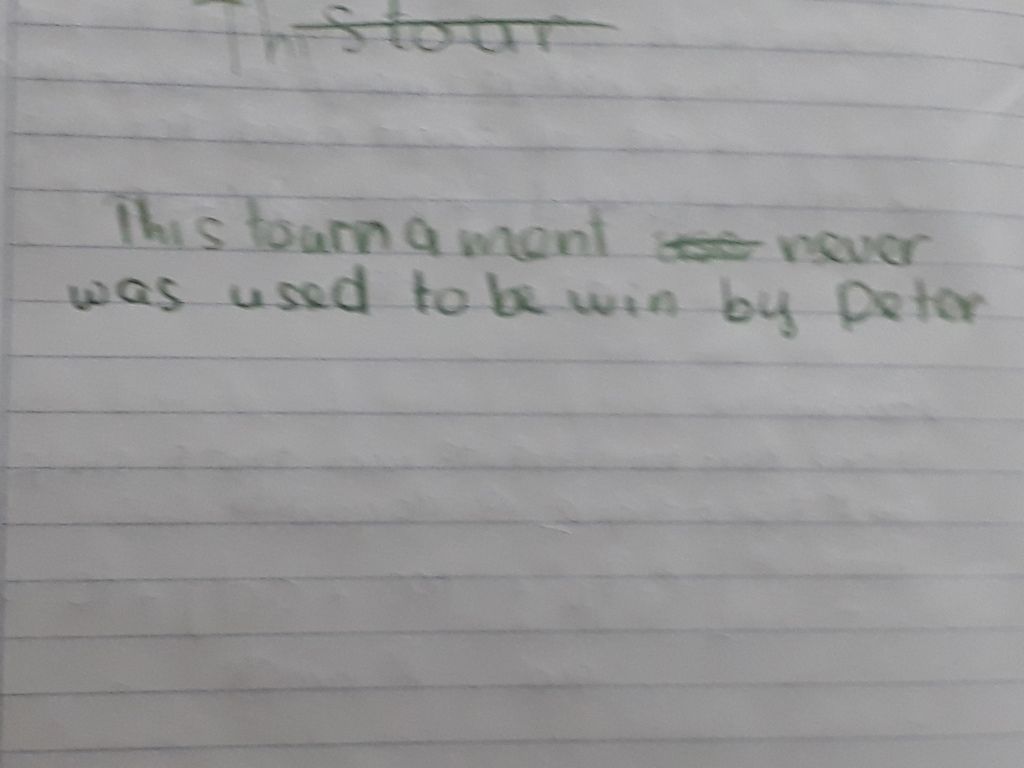 This tour
This tournament never
was used to be win by Peter